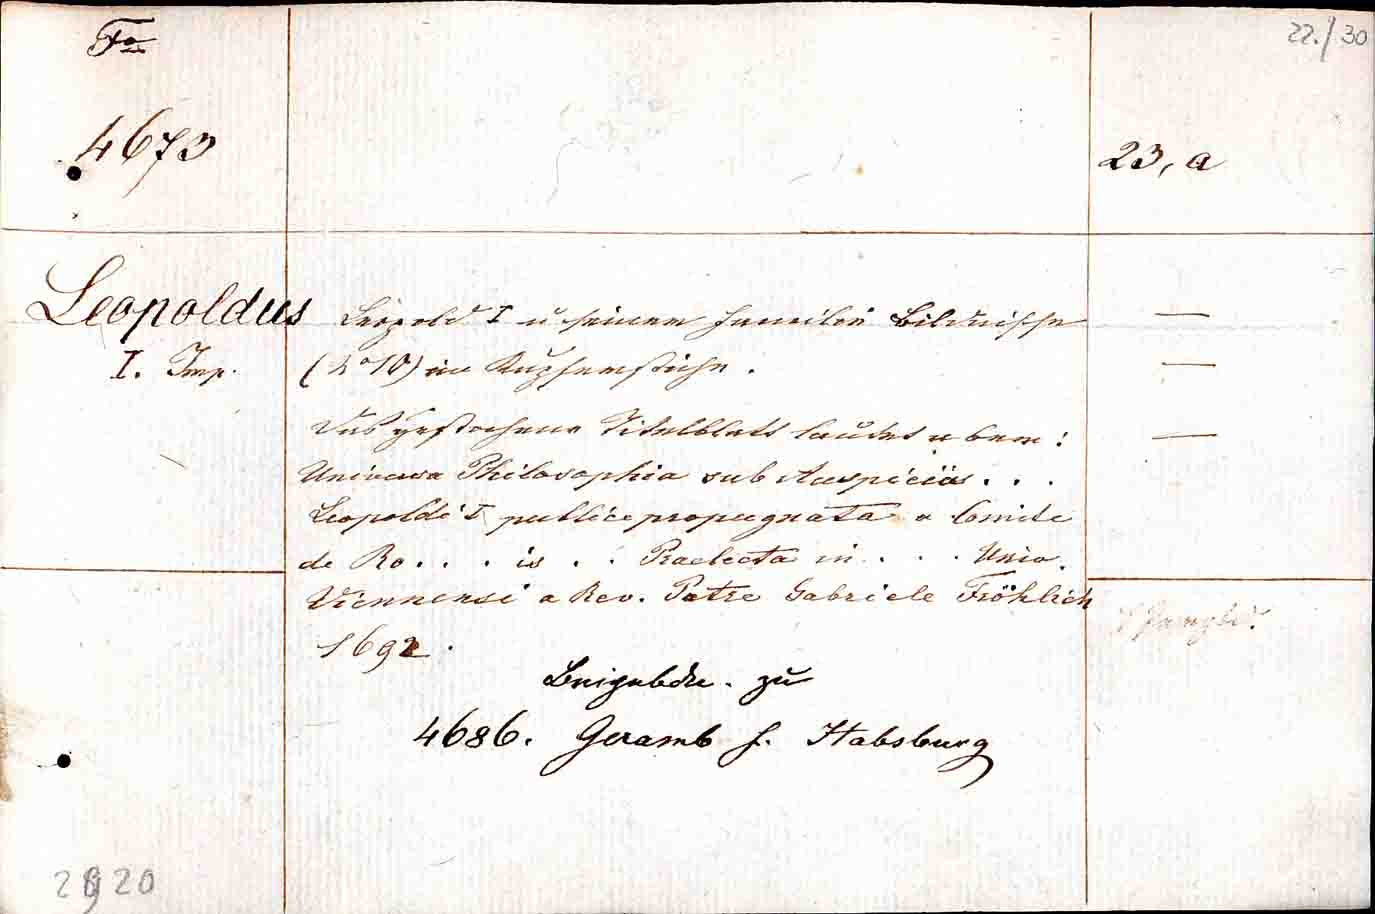 Fo
22./30
4673
23, a
Leopoldus
I. Imp.
Leopold I u seiner Familie Bildnisse
(2° 10) in Kupferstiche.
Das gestochene Titelblatt lautet oben:
Universa Philosophia sub Auspiciis . . .
Leopoldi I publice propugnata a Comite
de Ro . . . is . . Praelecta in . . . Univ.
Viennensi a Rev. Patre Gabriele Fröhlich
1692.
zu
4686. Geramb f. Habsburg
2920